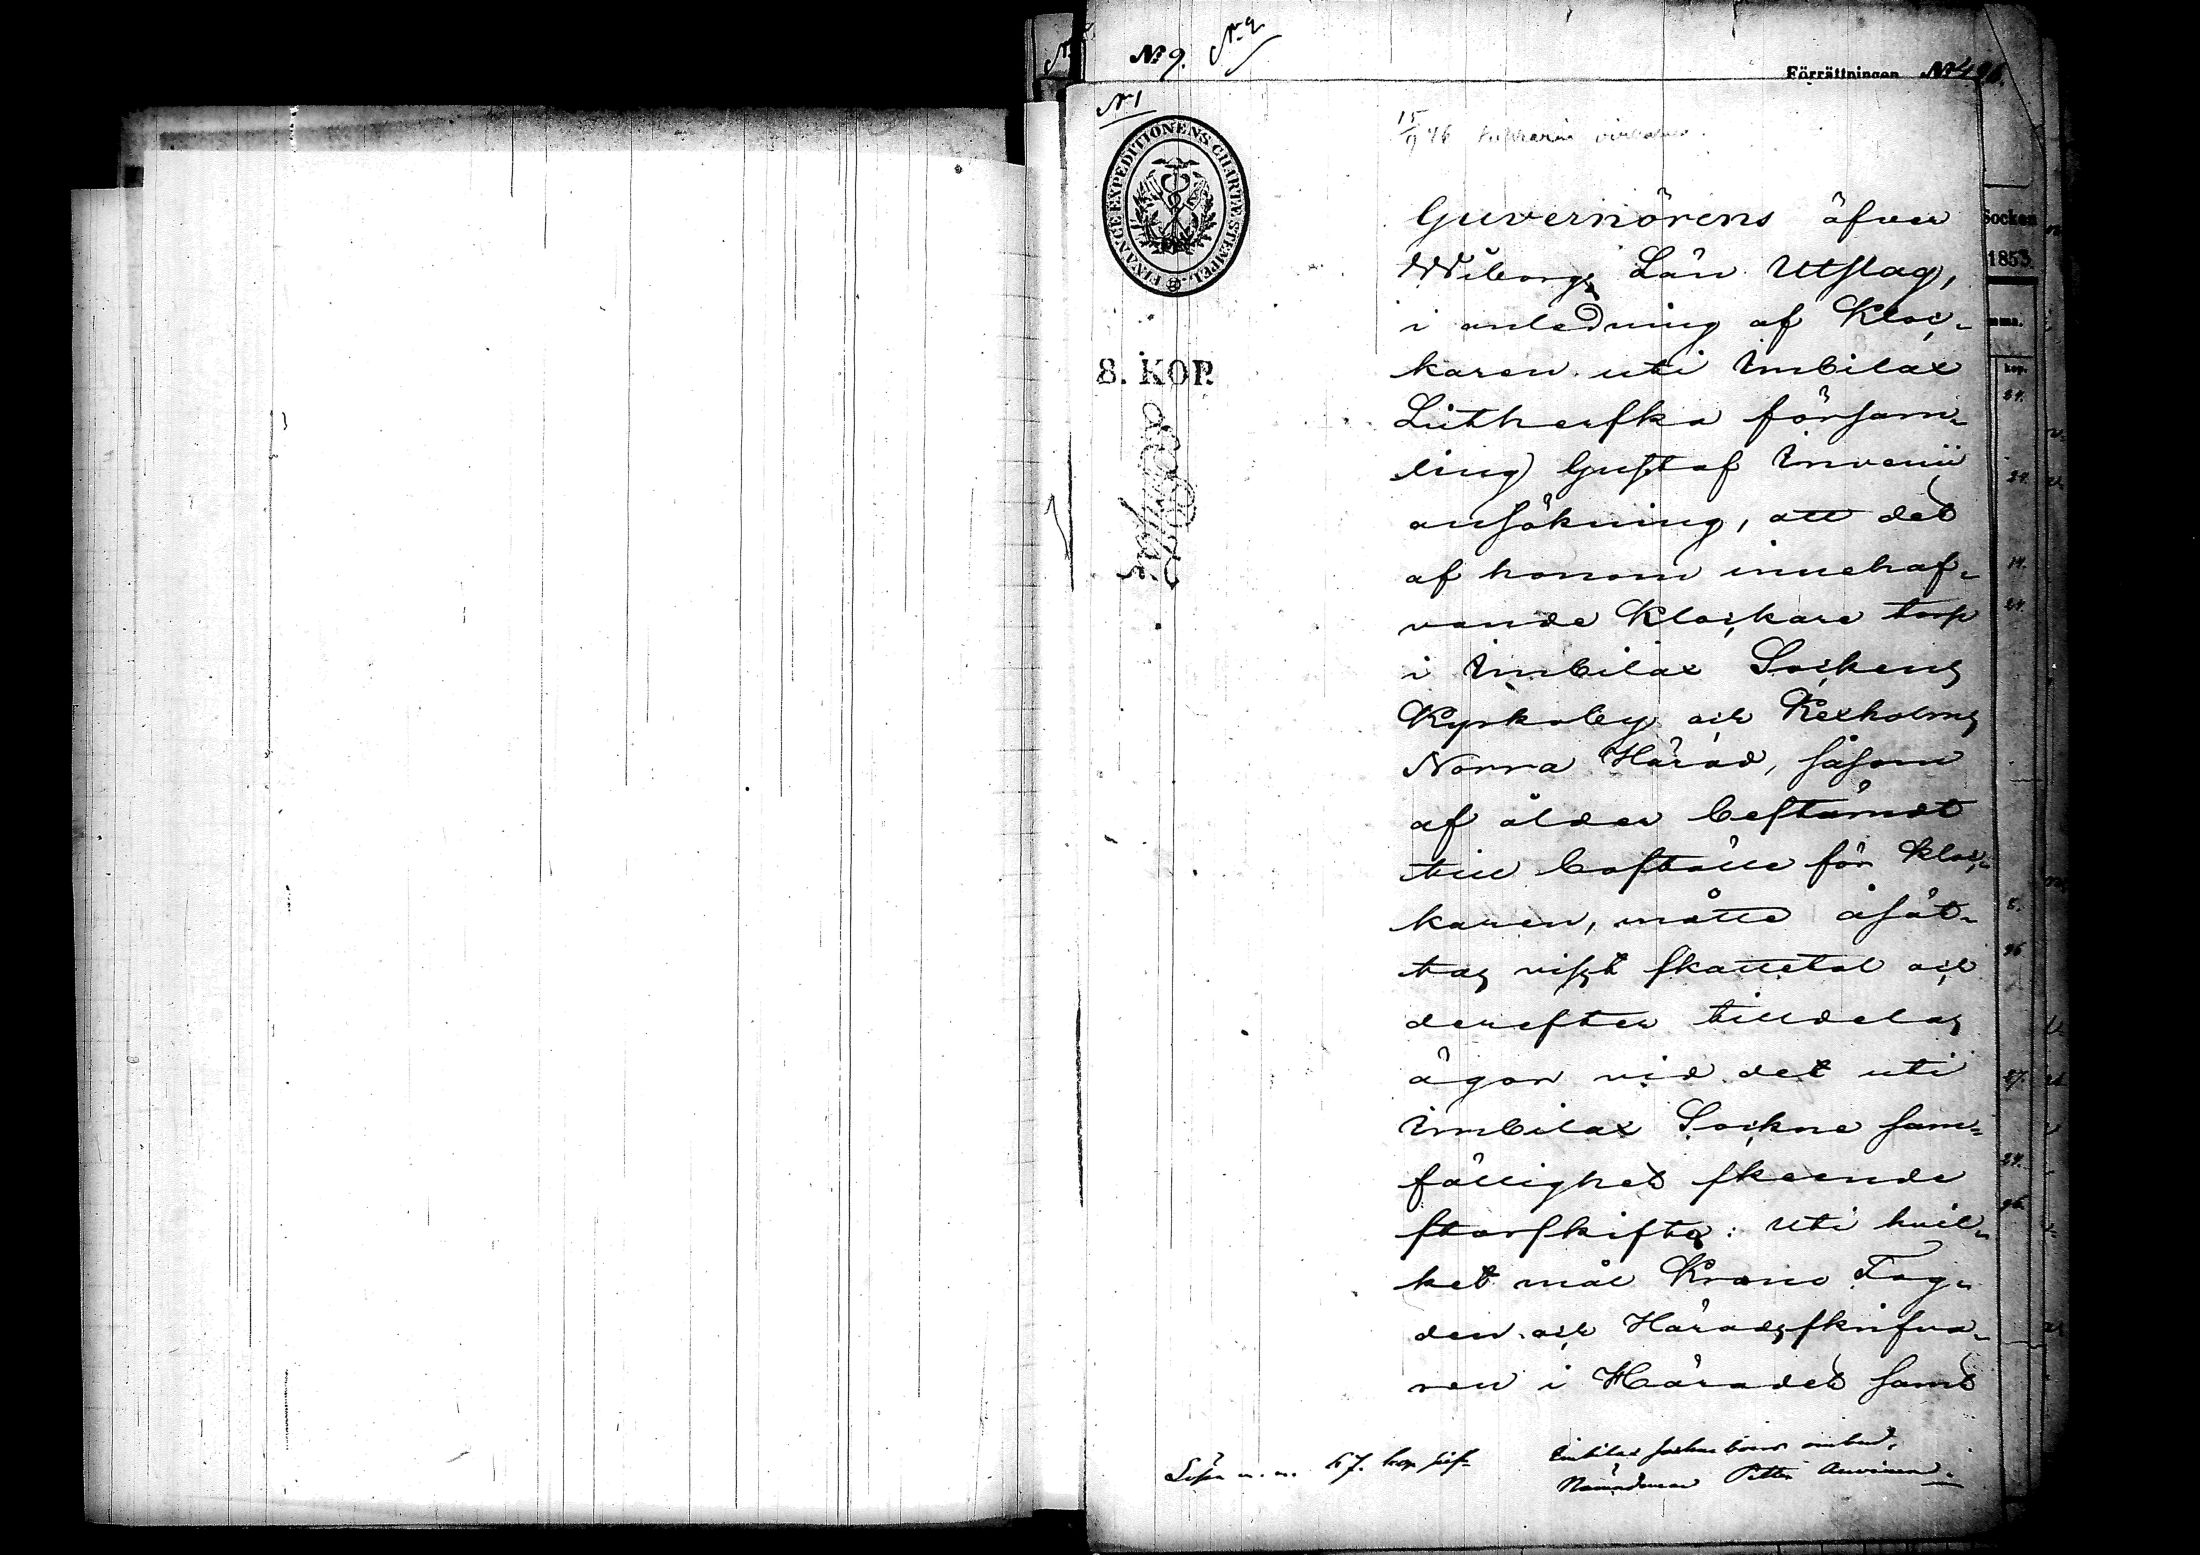 No 9.
No 2
Förrättningen
No 1
15/9 46
FINANCE EXPEDITIONENS CHARTÆ STEMPEL.
8. KOP.
Guvernörens öfver
Wiborgs Län Utslag,
i anledning af Kloc-
karen uti Imbilax
Lutherska försam-
ling Gustaf Invenii
ansökning, att det
af honom innehaf-
vande Klockare torp
i Imbilax Sockens
Kyrkoby och Kexholms
Norra Härad, såsom
af ålder bestämdt
till boställe för Kloc-
karen, måtte åsät-
tas visst skattetal och
derefter tilldelas
ägor vid det uti
Imbilax Sockne sam-
fällighet skeende
storskifte: Uti hvil-
ket mål Krono Fog-
den och Häradsskrifva-
ren i Häradet samt
Lösn m. m. 67. kop silf.
Imbilax socknеboers ombud,
Nämndeman Petter Auvinen.
Socken
1853.
kop.
24.
24.
14.
24.
8.
96
27.
24.
96